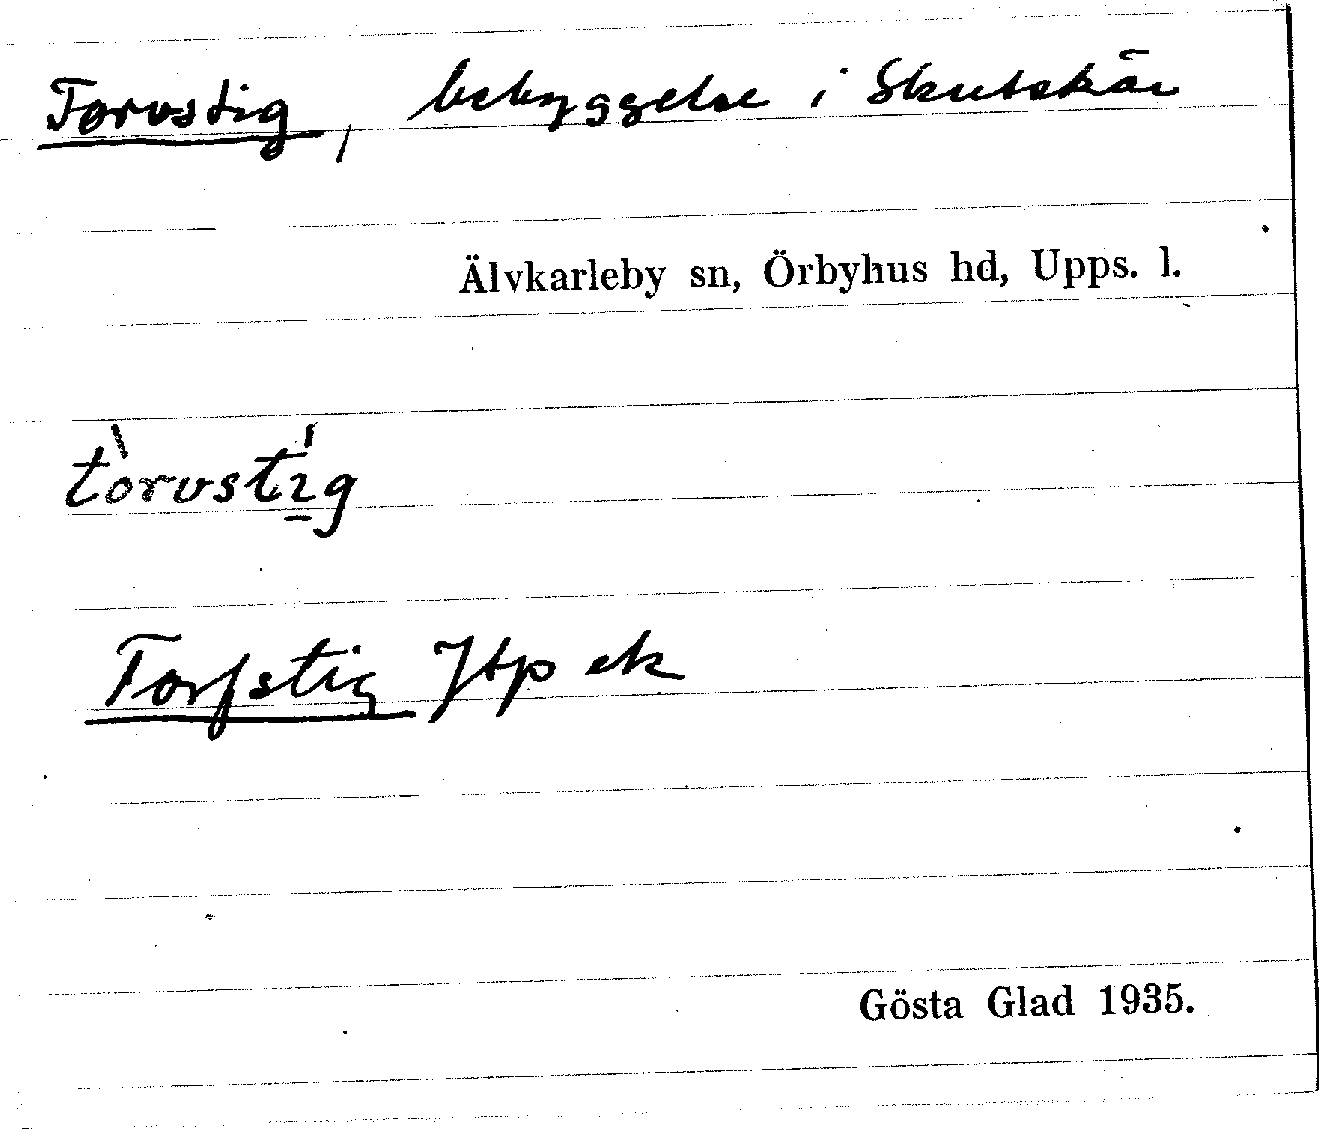 Torvstig, bebyggelse i Skutskär
Älvkarleby sn, Örbyhus hd, Upps. l.
tòrvstı̱́g
Torfstig Jtp ek
Gösta Glad 1935.